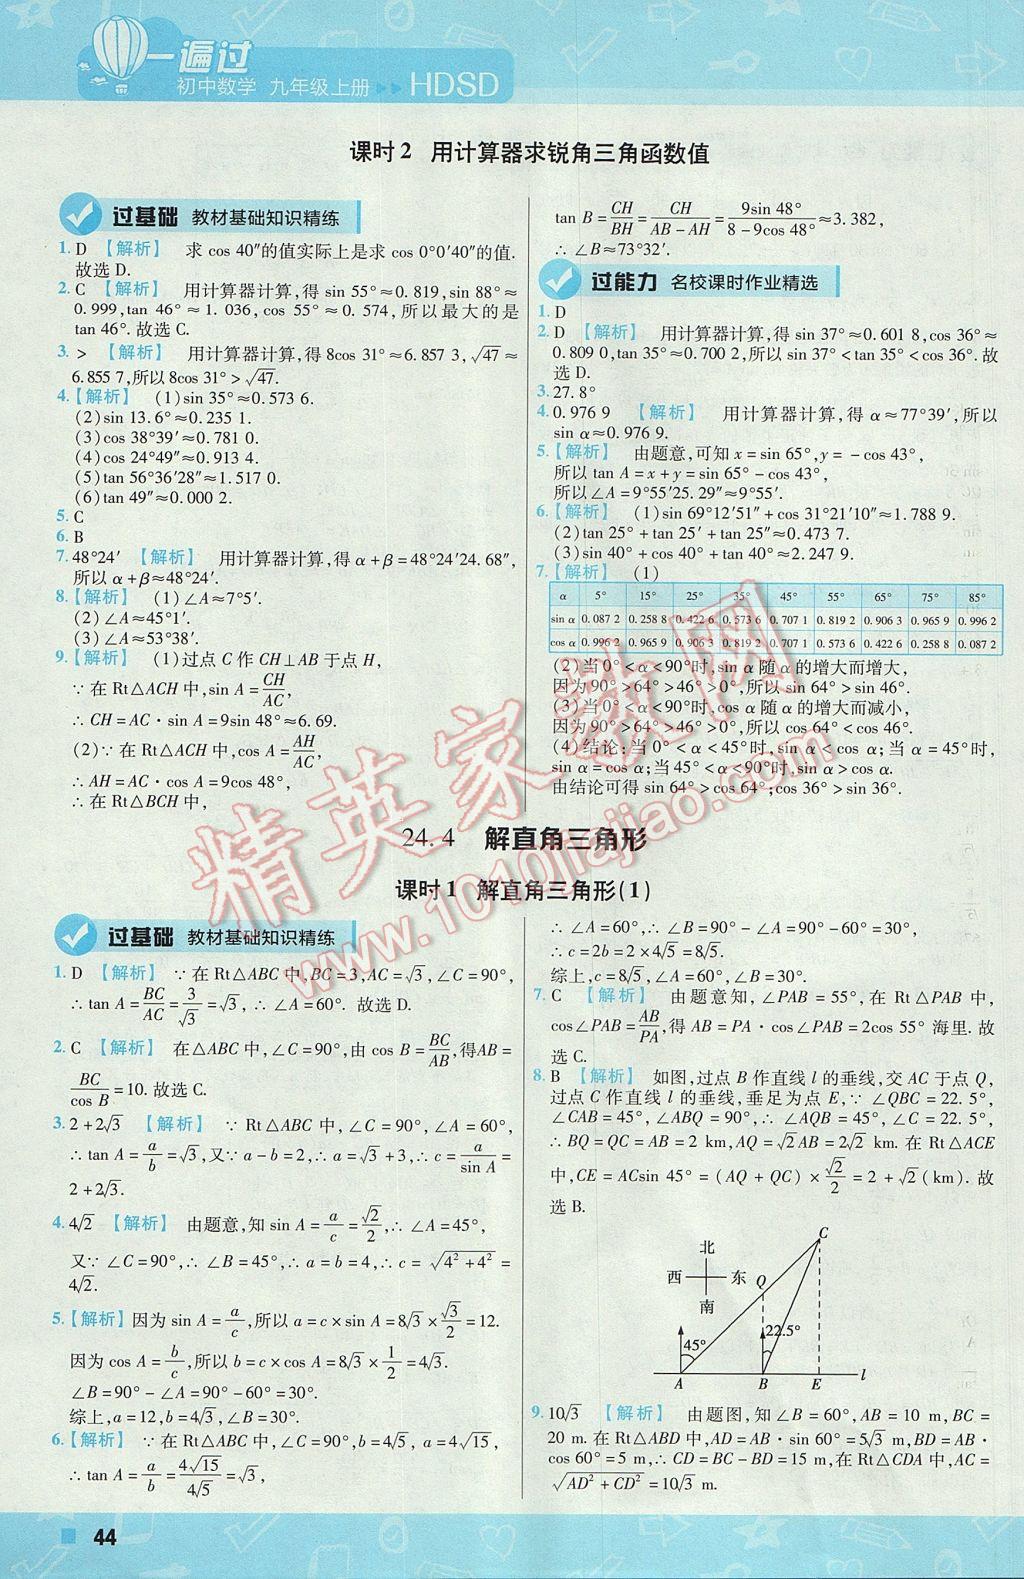 一遍过
初中数学 九年级上册 HDSD
课时2 用计算器求锐角三角函数值
过基础 教材基础知识精练
1. D 【解析】 求 cos 40″的值实际上是求 cos 0°0′40″的值.
故选 D.
2. C 【解析】 用计算器计算,得 sin 55°≈0. 819,sin 88°≈
0. 999,tan 46°≈1. 036,cos 55°≈0. 574,所以最大的是
tan 46°. 故选 C.
3. > 【解析】 用计算器计算,得 8cos 31°≈6. 857 3,√47≈
6. 855 7,所以 8cos 31°>√47.
4.【解析】 (1)sin 35°≈0. 573 6.
(2)sin 13. 6°≈0. 235 1.
(3)cos 38°39′≈0. 781 0.
(4)cos 24°49″≈0. 913 4.
(5)tan 56°36′28″≈1. 517 0.
(6)tan 49″≈0. 000 2.
5. C
6. B
7. 48°24′ 【解析】 用计算器计算,得 α+β=48°24′24. 68″,
所以 α+β≈48°24′.
8.【解析】 (1)∠A≈7°5′.
(2)∠A≈45°1′.
(3)∠A≈53°38′.
9.【解析】 (1)过点 C 作 CH⊥AB 于点 H,
∵在 Rt△ACH 中,sin A=CH/AC,
∴CH=AC·sin A=9sin 48°≈6. 69.
(2)∵在 Rt△ACH 中,cos A=AH/AC,
∴AH=AC·cos A=9cos 48°,
∴在 Rt△BCH 中,
tan B=CH/BH=CH/(AB-AH)=9sin 48°/(8-9cos 48°)≈3. 382,
∴∠B≈73°32′.
过能力 名校课时作业精选
1. D
2. D 【解析】 用计算器计算,得 sin 37°≈0. 601 8,cos 36°≈
0. 809 0,tan 35°≈0. 700 2,所以 sin 37°<tan 35°<cos 36°. 故
选 D.
3. 27. 8°
4. 0. 976 9 【解析】 用计算器计算,得 α≈77°39′,所以
sin α≈0. 976 9.
5.【解析】 由题意,可知 x=sin 65°,y=-cos 43°,
所以 tan A=x+y=sin 65°-cos 43°,
所以∠A=9°55′25. 29″≈9°55′.
6.【解析】 (1)sin 69°12′51″+cos 31°21′10″≈1. 788 9.
(2)tan 25°+tan 25′+tan 25″≈0. 473 7.
(3)sin 40°+cos 40°+tan 40°≈2. 247 9.
7.【解析】 (1)
α 5° 15° 25° 35° 45° 55° 65° 75° 85°
sin α 0. 087 2 0. 258 8 0. 422 6 0. 573 6 0. 707 1 0. 819 2 0. 906 3 0. 965 9 0. 996 2
cos α 0. 996 2 0. 965 9 0. 906 3 0. 819 2 0. 707 1 0. 573 6 0. 422 6 0. 258 8 0. 087 2
(2)当 0°<α<90°时,sin α 随 α 的增大而增大,
因为 90°>64°>46°>0°,所以 sin 64°>sin 46°.
(3)当 0°<α<90°时,cos α 随 α 的增大而减小,
因为 90°>64°>46°>0°,所以 cos 64°<cos 46°.
(4)结论:当 0°<α<45°时,sin α<cos α;当 α=45°时,
sin α=cos α;当 45°<α<90°时,sin α>cos α.
由结论可得 sin 64°>cos 64°;cos 36°>sin 36°.
24. 4 解直角三角形
课时1 解直角三角形(1)
过基础 教材基础知识精练
1. D 【解析】 ∵在 Rt△ABC 中,BC=3,AC=√3,∠C=90°,
∴tan A=BC/AC=3/√3=√3,∴∠A=60°. 故选 D.
2. C 【解析】 在△ABC 中,∠C=90°,由 cos B=BC/AB,得AB=
BC/cos B=10. 故选 C.
3. 2+2√3 【解析】 ∵Rt△ABC 中,∠C=90°,∠A=60°,
∴tan A=a/b=√3,又∵a-b=2,∴a=√3+3,∴c=a/sin A=
2+2√3.
4. 4√2 【解析】 由题意,知 sin A=a/c=√2/2,∴∠A=45°,
又∵∠C=90°,∴∠B=45°,∴a=b=4,∴c=√(4²+4²)=
4√2.
5.【解析】因为 sin A=a/c,所以 a=c×sin A=8√3×√3/2=12.
因为 cos A=b/c,所以 b=c×cos A=8√3×1/2=4√3.
∠B=90°-∠A=90°-60°=30°.
综上,a=12,b=4√3,∠B=30°.
6.【解析】 ∵在 Rt△ABC 中,∠C=90°,b=4√5,a=4√15,
∴tan A=a/b=4√15/4√5=√3,
∴∠A=60°,∴∠B=90°-∠A=90°-60°=30°,
∴c=2b=2×4√5=8√5.
综上,c=8√5,∠A=60°,∠B=30°.
7. C 【解析】 由题意知,∠PAB=55°,在 Rt△PAB 中,
cos∠PAB=AB/PA,得 AB=PA·cos∠PAB=2cos 55° 海里. 故
选 C.
8. B 【解析】 如图,过点 B 作直线 l 的垂线,交 AC 于点 Q,
过点 C 作直线 l 的垂线,垂足为点 E,∵∠QBC=22. 5°,
∠CAB=45°,∠ABQ=90°,∴∠AQB=45°,∠C=22. 5°,
∴BQ=QC=AB=2 km,AQ=√2AB=2√2 km. 在 Rt△ACE
中,CE=ACsin 45°=(AQ+QC)×√2/2=2+√2(km). 故
选 B.
北
西 东
南
C
Q
45°
22.5°
A B E l
9. 10√3 【解析】 由题图,知∠B=60°,AB=10 m,BC=
20 m. 在 Rt△ABD 中,AD=AB·sin 60°=5√3 m,BD=AB·
cos 60°=5 m,∴CD=BC-BD=15 m,在 Rt△CDA 中,AC=
√(AD²+CD²)=10√3 m.
44
精英家教网
www.1010jiajiao.com